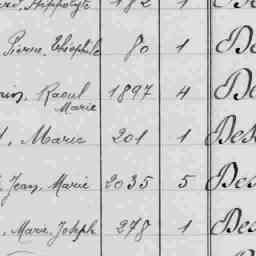 Hippolyte 182 1
Pierre, Théophile 80 1 De
Raoul 1897 4 De
Marie
Marie 201 1 Des
Jean, Marie 2035 5 Des
, Marie, Joseph 278 1 Des